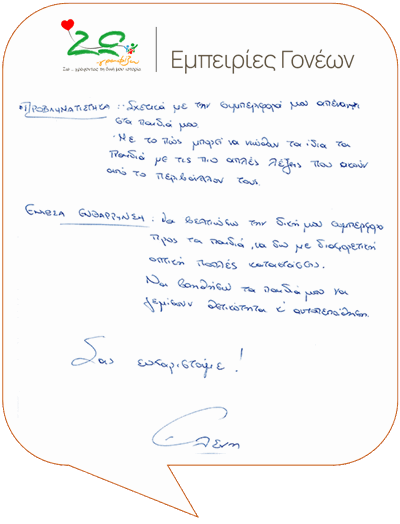 Ζω ... γράφοντας τη δική μου ιστορία
Εμπειρίες Γονέων
ΠΡΟΒΛΗΜΑΤΙΣΤΗΚΑ : Σχετικά με την συμπεριφορά μου απέναντι
στα παιδιά μου.
Με το πώς μπορεί να νιώθουν τα ίδια τα
παιδιά με τις πιο απλές λέξεις που ακούν
από το περιβάλλον τους.
ΕΝΙΩΣΑ ΕΝΘΑΡΡΥΝΣΗ : Να βελτιώσω την δική μου συμπεριφορά
προς τα παιδιά, να δω με διαφορετική
οπτική πολλές καταστάσεις.
Να βοηθήσω τα παιδιά μου να
γεμίσουν θετικότητα κ' αυτοπεποίθηση
Σας ευχαριστούμε!
Ελένη